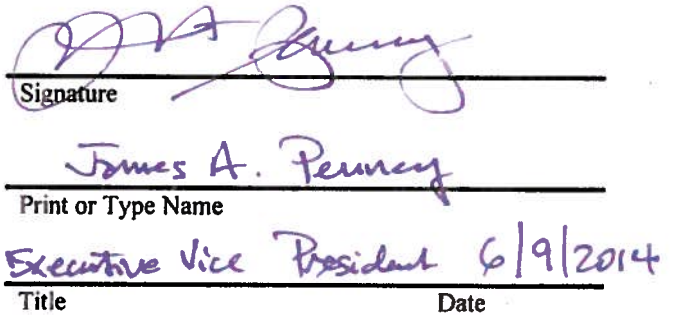 Signature
James A. Penney
Print or Type Name
Executive Vice President 6/9/2014
Title Date